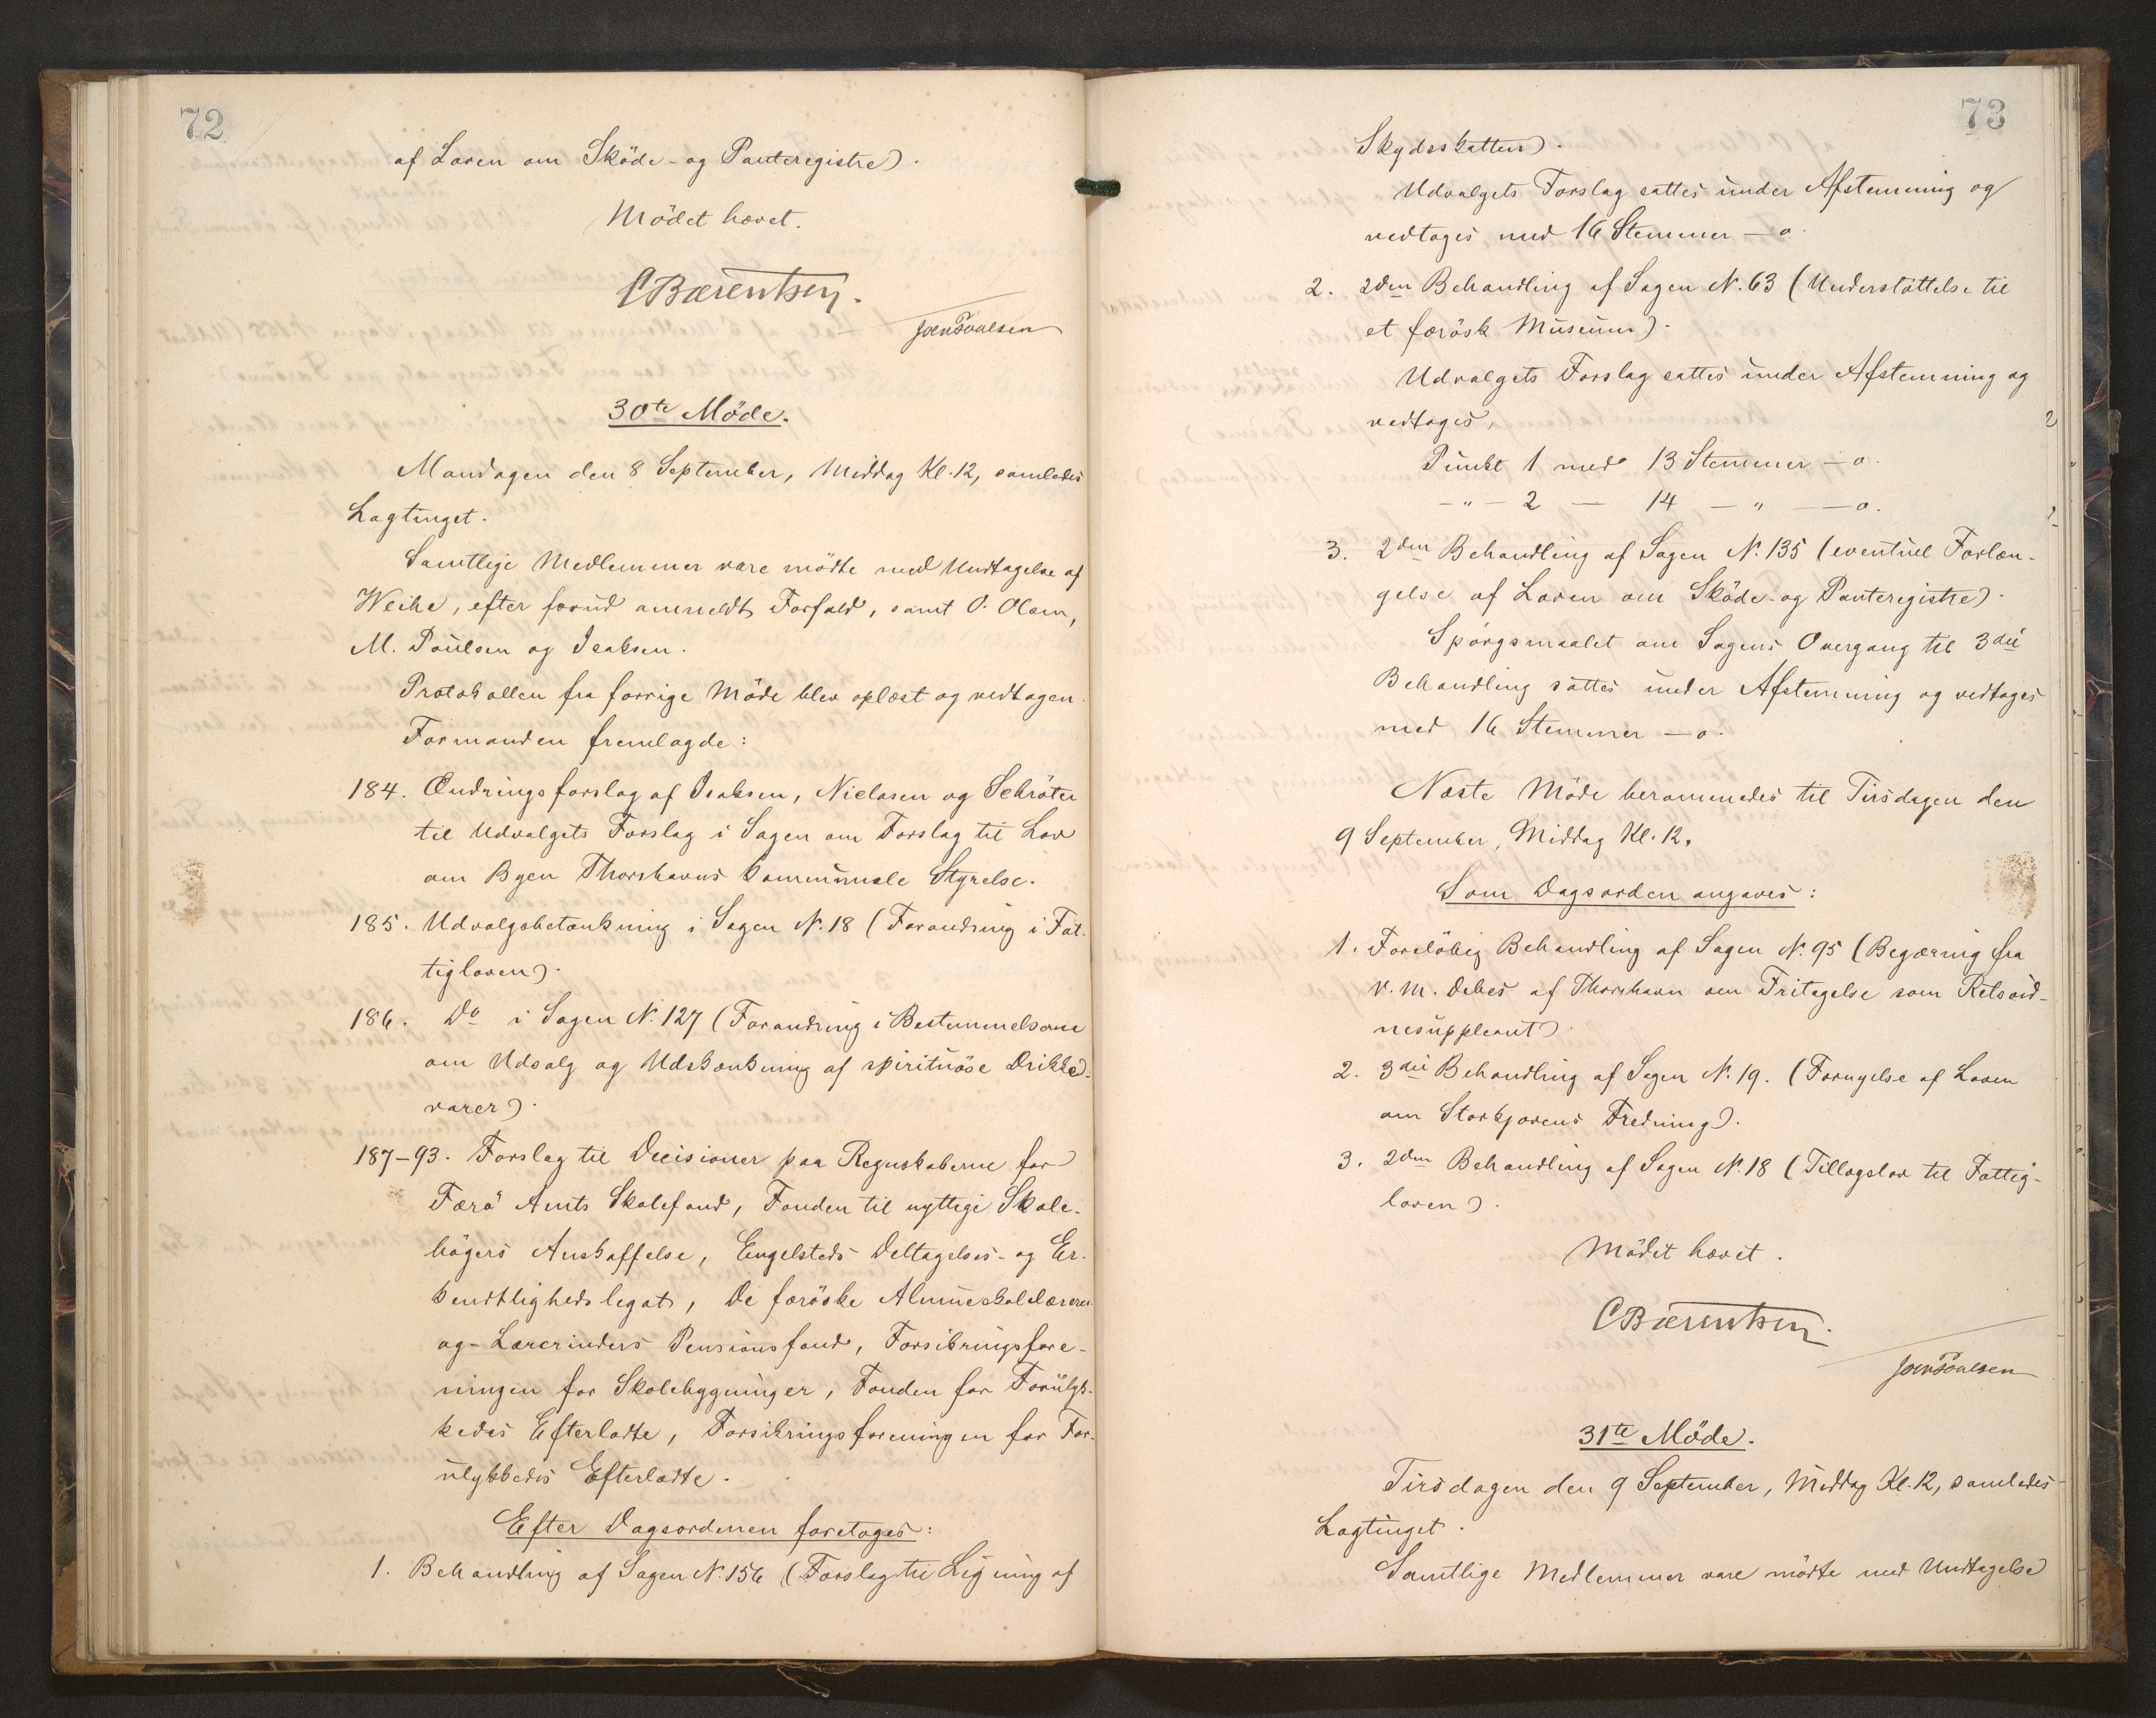 72
af Loven om Sköde- og Panteregistre).
Mödet hævet.
CBærentsen.
JoenPoulsen
30te Möde.
Mandagen den 8 September, Middag Kl. 12, samledes
Lagtinget.
Samtlige Medlemmer vare mödte med Undtagelse af
Weihe, efter forud anmeldt Forfald, samt O. Olsen,
M. Poulsen og Isaksen.
Protokollen fra forrige Möde blev oplæst og vedtagen.
Formanden fremlagde:
184. Ændringsforslag af Isaksen, Nielasen og Schröter
til Udvalgets Forslag i Sagen om Forslag til Lov
om Byen Thorshavns kommunale Styrelse.
185. Udvalgsbetænkning i Sagen N. 18 (Forandring i Fat-
tigloven).
186. Do i Sagen N. 127 (Forandring i Bestemmelserne
om Udsalg og Udskænkning af spirituöse Drikke-
varer).
187-93. Forslag til Decisioner paa Regnskaberne for
Færö Amts Skolefond, Fonden til nyttige Skole-
bögers Anskaffelse, Engelsteds Deltagelses- og Er-
kendtligheds legat, De færöske Almueskolelærere
og- Lærerinders Pensionsfond, Forsikringsfore-
ningen for Skolebygninger, Fonden for Forulyk-
kedes Efterladte, Forsikringsforeningen for For-
ulykkedes Efterladte.
Efter Dagsordenen foretoges:
1. Behandling af Sagen N. 156 (Forslag til Ligning af
73
Skydsskatten).
Udvalgets Forslag sattes under Afstemning og
vedtoges med 16 Stemmer - o.
2. 2den Behandling af Sagen N. 63 (Understöttelse til
et færösk Museum).
Udvalgets Forslag sattes under Afstemning og
vedtoges,
Punkt 1 med 13 Stemmer - o.
- " - 2 - 14 - " - - o.
3. 2den Behandling af Sagen N. 135 (eventuel Forlæn-
gelse af Loven om Sköde- og Panteregistre).
Spörgsmaalet om Sagens Overgang til 3die
Behandling sattes under Afstemning og vedtoges
med 16 Stemmer - o.
Næste Möde berammedes til Tirsdagen den
9 September, Middag Kl. 12.
Som Dagsorden angaves:
1. Forelöbig Behandling af Sagen N. 95 (Begæring fra
V. M. Debes af Thorshavn om Fritagelse som Retsvid-
nesuppleant).
2. 3die Behandling af Sagen N. 19. (Fornyelse af Loven
om Storkjovens Fredning).
3. 2den Behandling af Sagen N. 18 (Tillægslov til Fattig-
loven).
Mödet hævet.
CBærentsen.
JoenPoulsen
31te Möde.
Tirsdagen den 9 September, Middag Kl. 12, samledes
Lagtinget.
Samtlige Medlemmer vare mödte med Undtagelse